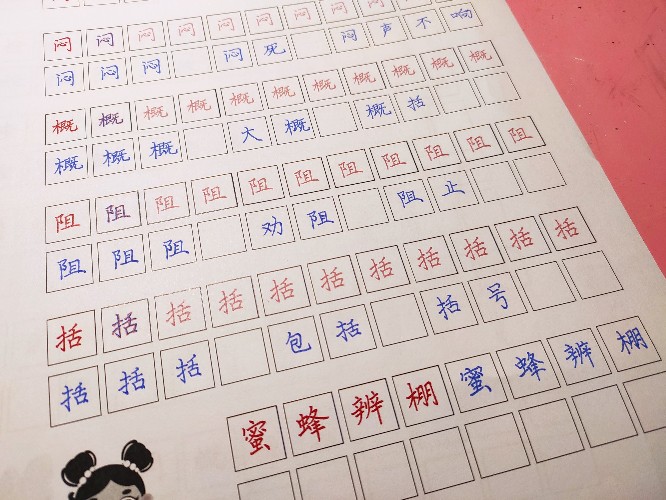 闷闷闷闷闷闷闷闷闷闷闷
闷闷闷 闷死 闷声不响
概概概概概概概概概概概
概概概 大概 概括
阻阻阻阻阻阻阻阻阻阻阻
阻阻阻 劝阻 阻止
括括括括括括括括括括括
括括括 包括 括号
蜜蜂辨棚蜜蜂辨棚